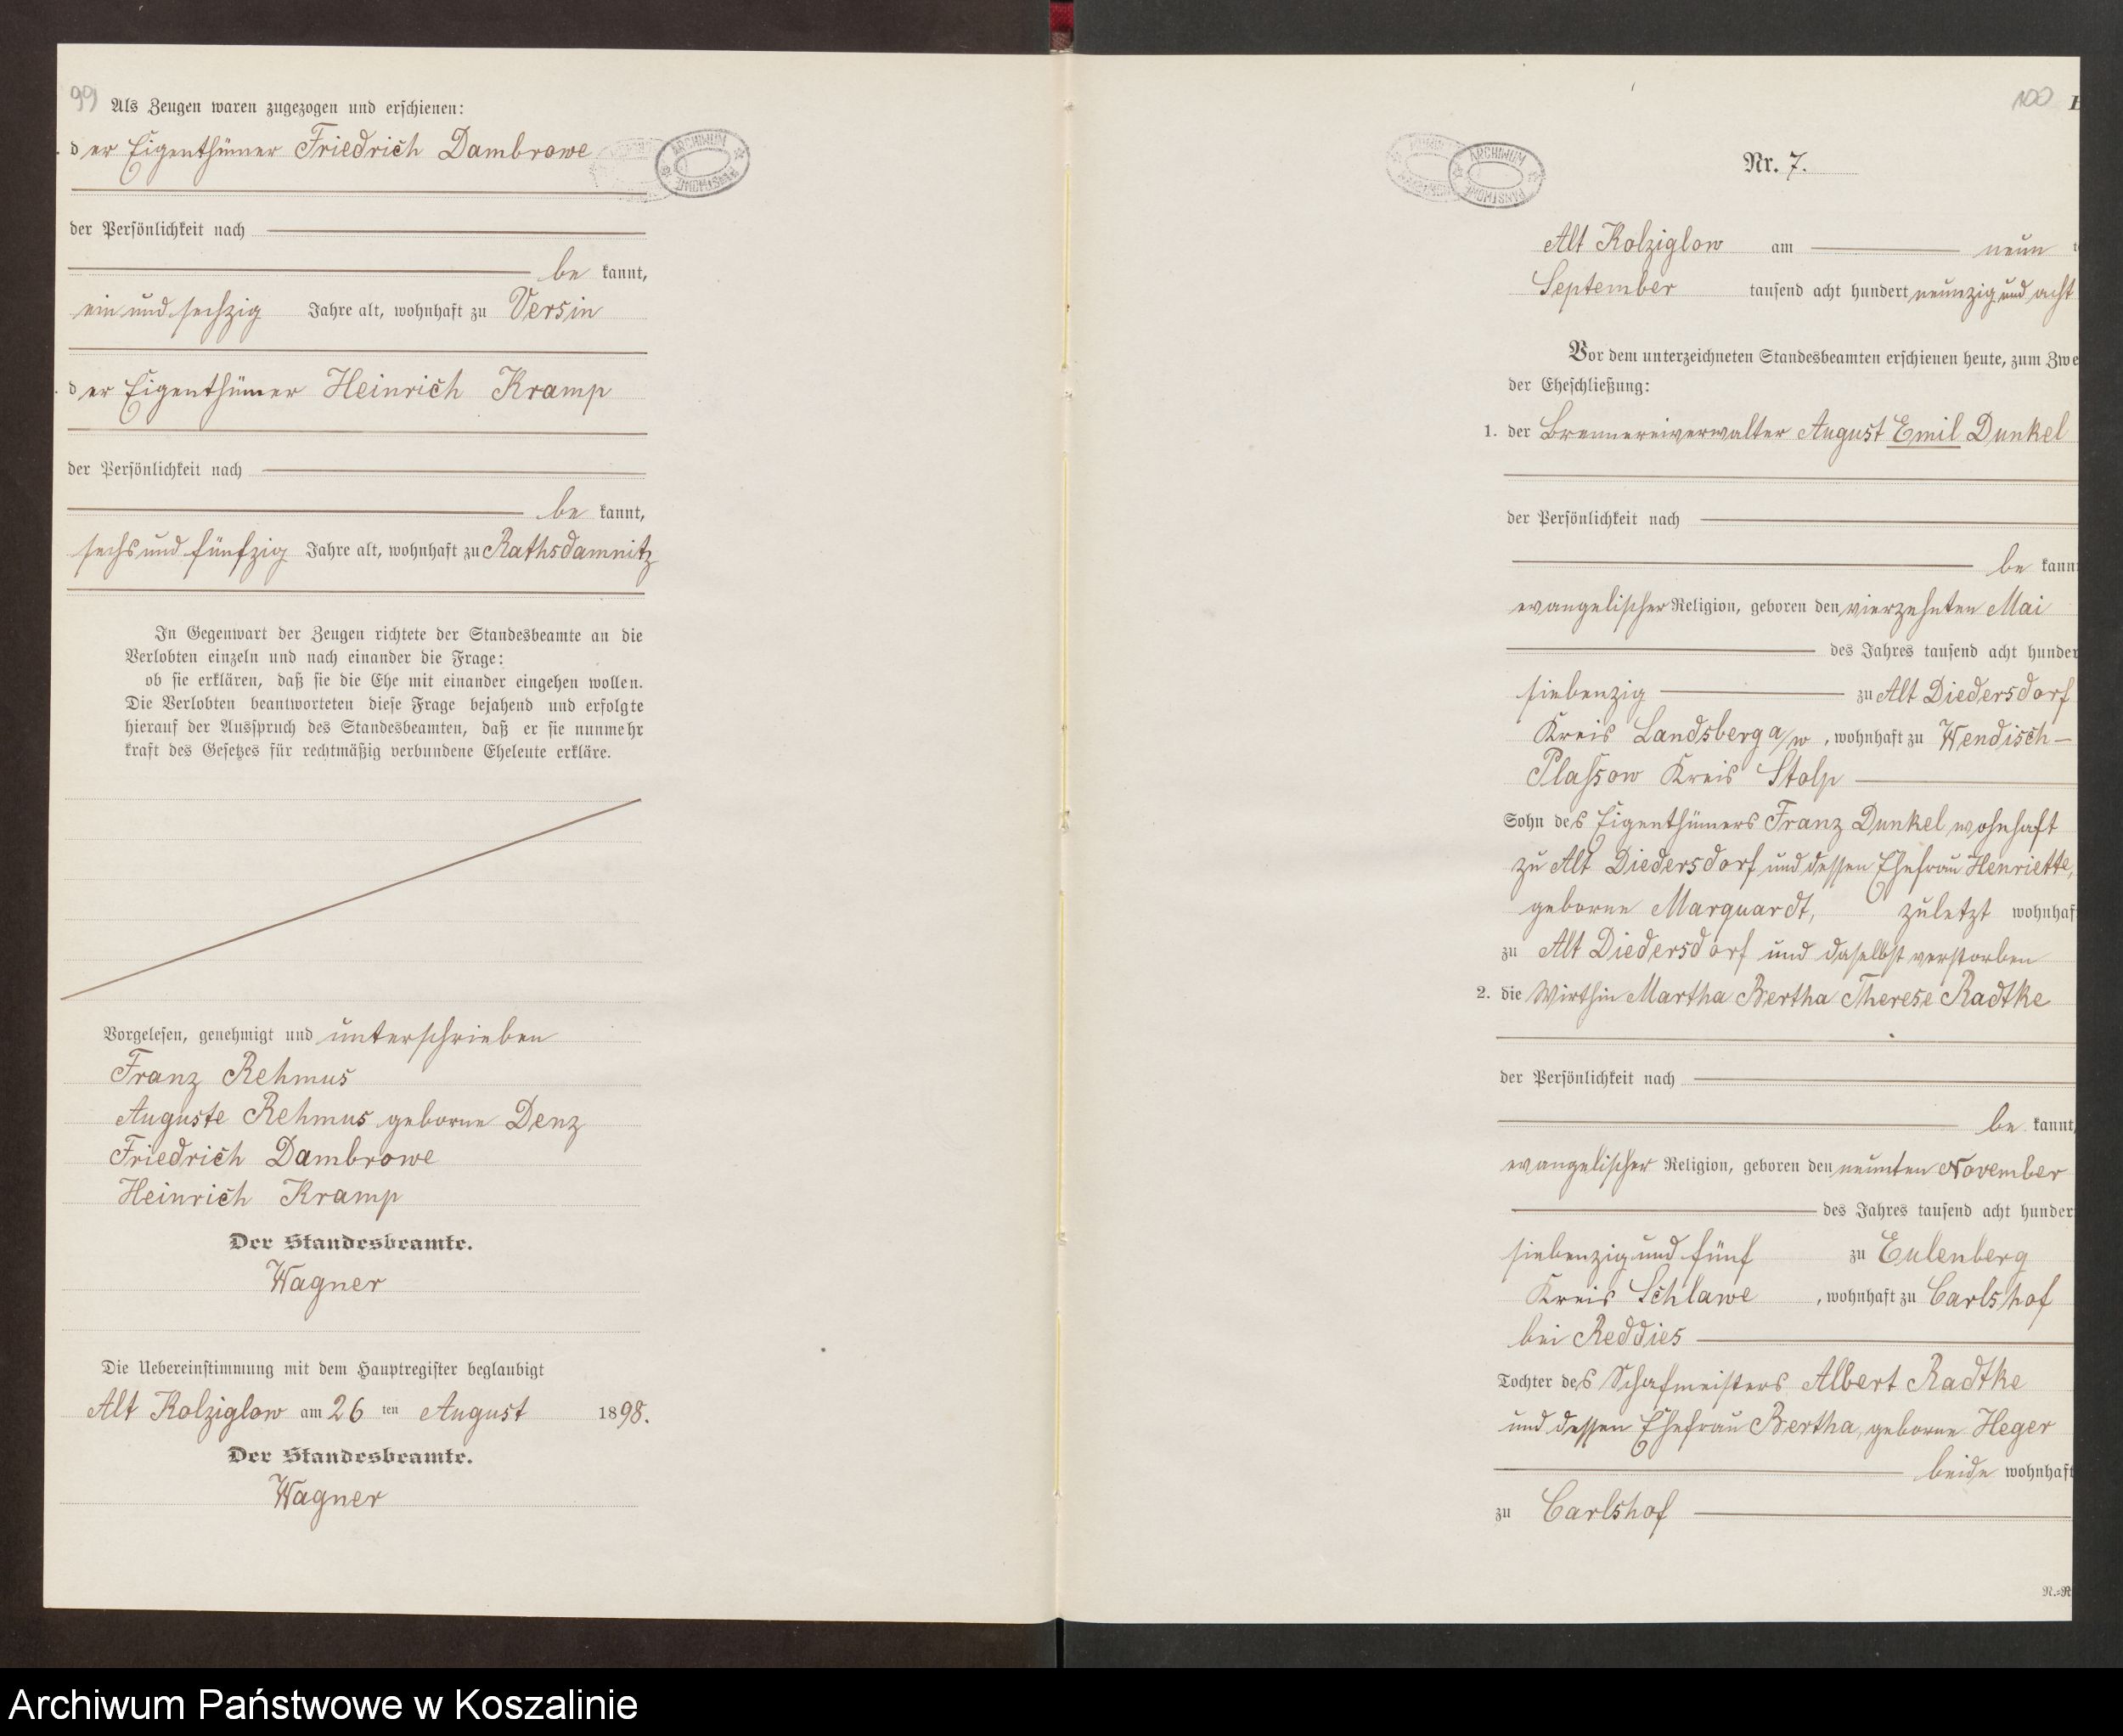 99
Als Zeugen waren zugezogen und erschienen:
der Eigenthümer Friedrich Dambrowe
der Persönlichkeit nach
be kannt,
ein und sechzig Jahre alt, wohnhaft zu Versin
der Eigenthümer Heinrich Kramp
der Persönlichkeit nach
be kannt,
sechs und fünfzig Jahre alt, wohnhaft zu Rathsdamnitz
In Gegenwart der Zeugen richtete der Standesbeamte an die
Verlobten einzeln und nach einander die Frage:
ob sie erklären, daß sie die Ehe mit einander eingehen wollen.
Die Verlobten beantworteten diese Frage bejahend und erfolgte
hierauf der Ausspruch des Standesbeamten, daß er sie nunmehr
kraft des Gesetzes für rechtmäßig verbundene Eheleute erkläre.
Vorgelesen, genehmigt und unterschrieben
Franz Rehmus
Auguste Rehmus geborne Denz
Friedrich Dambrowe
Heinrich Kramp
Der Standesbeamte.
Wagner
Die Uebereinstimmung mit dem Hauptregister beglaubigt
Alt Kolziglow am 26 ten August 1898.
Der Standesbeamte.
Wagner
ARCHIWUM PAŃSTWOWE
100
ARCHIWUM PAŃSTWOWE
Nr. 7.
Alt Kolziglow am neun
September tausend acht hundert neunzig und acht
Vor dem unterzeichneten Standesbeamten erschienen heute, zum Zwe
der Eheschließung:
1. der Brennereiverwalter August Emil Dunkel
der Persönlichkeit nach
be kann
evangelischer Religion, geboren den vierzehnten Mai
des Jahres tausend acht hunder
siebenzig zu Alt Diedersdorf
Kreis Landsberg a/w, wohnhaft zu Wendisch-
Plassow Kreis Stolp
Sohn des Eigenthümers Franz Dunkel wohnhaft
zu Alt Diedersdorf und dessen Ehefrau Henriette,
geborne Marquardt, zuletzt wohnhaf
zu Alt Diedersdorf und daselbst verstorben
2. die Wirthin Martha Bertha Therese Radtke
der Persönlichkeit nach
be kannt,
evangelischer Religion, geboren den neunten November
des Jahres tausend acht hunder
siebenzig und fünf zu Eulenberg
Kreis Schlawe, wohnhaft zu Carlshof
bei Reddies
Tochter des Schafmeisters Albert Radtke
und dessen Ehefrau Bertha, geborne Heger
beide wohnhaft
zu Carlshof
Archiwum Państwowe w Koszalinie